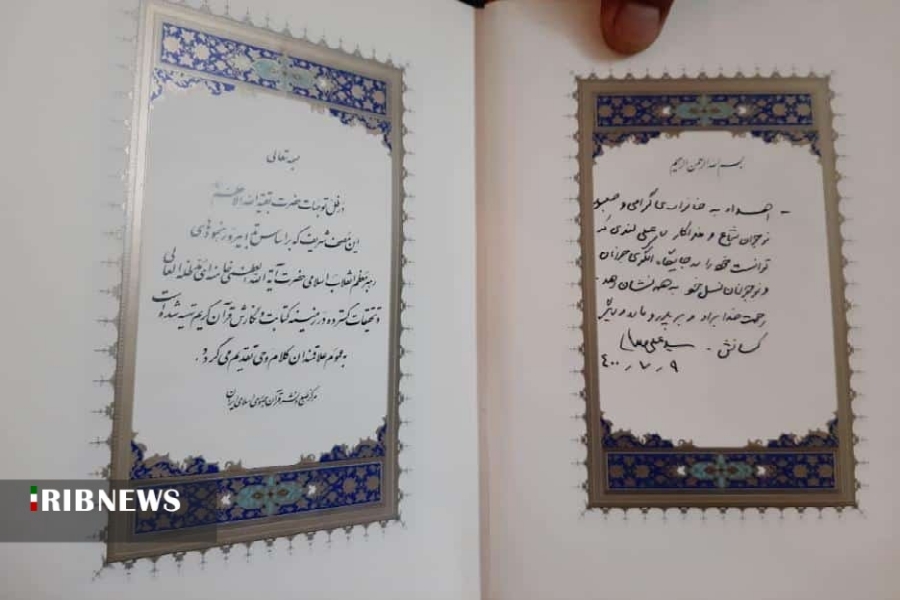 بسمه تعالی
در ظل توجهات حضرت بقیة الله الاعظم
این مصحف شریف که بر اساس تدابیر و رهنمودهای
رهبر معظم انقلاب اسلامی حضرت آیة الله العظمی خامنه‌ای مدظله العالی
و تحقیقات گسترده در زمینه کتابت و نگارش قرآن کریم تهیه شده است
به عموم علاقمندان کلام وحی تقدیم می گردد.
مرکز طبع و نشر قرآن جمهوری اسلامی ایران
بسم الله الرحمن الرحیم
- اهداء به خانواده‌ی گرامی و صبور
نوجوان شجاع و فداکار علی لندی که
توانست خود را به جایگاه الگوی جوانان
و نوجوانان نسل خود به همه نشان دهد.
رحمت خدا بر او و بر پدر و مادر و دیگر
کسانش. سیدعلی خامنه‌ای
۴۰۰/۷/۹
RIBNEWS